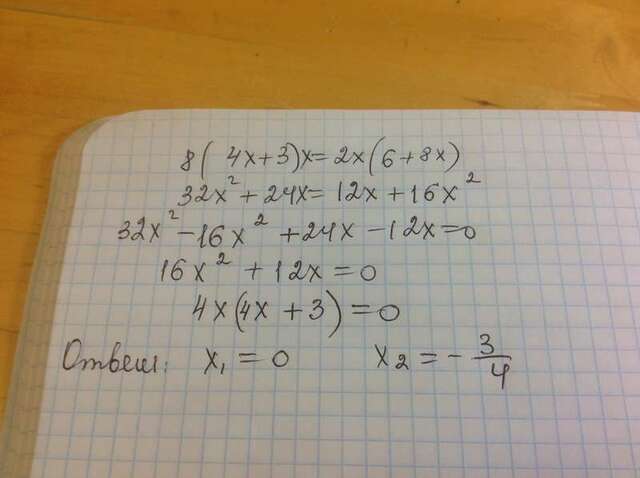 8(4x+3)x=2x(6+8x)
32x²+24x=12x+16x²
32x²-16x²+24x-12x=0
16x²+12x=0
4x(4x+3)=0
Ответ: x₁=0 x₂=-3/4